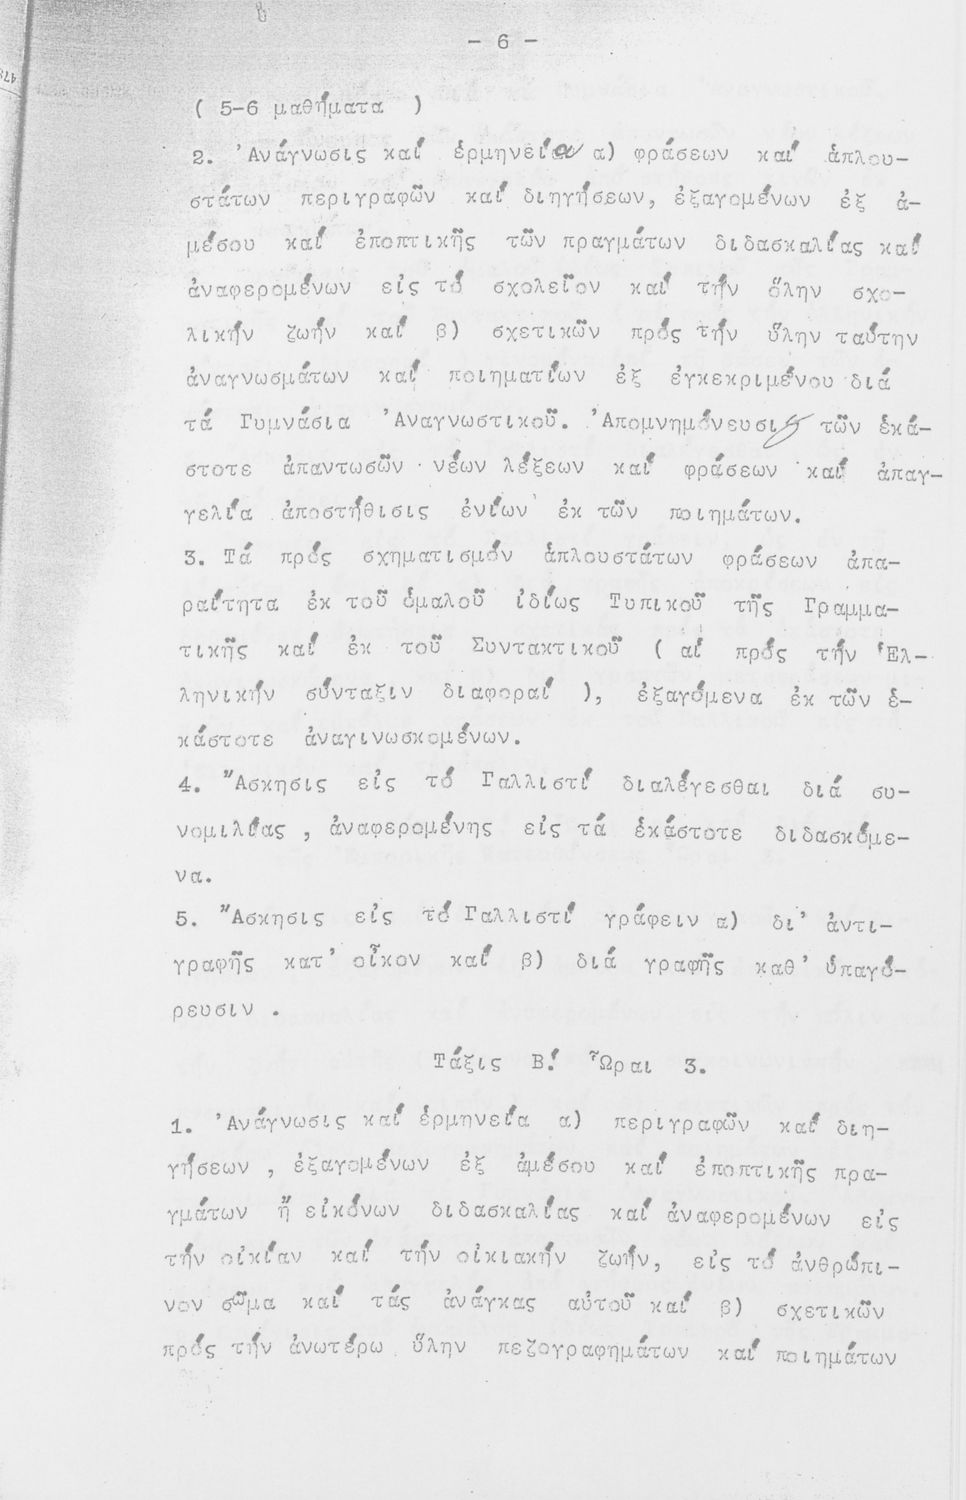 - 6 -
( 5-6 μαθήματα )
2. Ἀνάγνωσις καί ἑρμηνεία α) φράσεων καί ἁπλου-
στάτων περιγραφῶν καί διηγήσεων, ἐξαγομένων ἐξ ἀ-
μέσου καί ἐποπτικῆς τῶν πραγμάτων διδασκαλίας καί
ἀναφερομένων εἰς τό σχολεῖον καί τήν ὅλην σχο-
λικήν ζωήν καί β) σχετικῶν πρός τήν ὕλην ταύτην
ἀναγνωσμάτων καί ποιηματίων ἐξ ἐγκεκριμένου διά
τά Γυμνάσια Ἀναγνωστικοῦ. Ἀπομνημόνευσις τῶν ἑκά-
στοτε ἀπαντωσῶν νέων λέξεων καί φράσεων καί ἀπαγ-
γελία ἀποστήθισις ἐνίων ἐκ τῶν ποιημάτων.
3. Τά πρός σχηματισμόν ἁπλουστάτων φράσεων ἀπα-
ραίτητα ἐκ τοῦ ὁμαλοῦ ἰδίως Τυπικοῦ τῆς Γραμμα-
τικῆς καί ἐκ τοῦ Συντακτικοῦ ( αἱ πρός τήν Ἑλ-
ληνικήν σύνταξιν διαφοραί ), ἐξαγόμενα ἐκ τῶν ἑ-
κάστοτε ἀναγινωσκομένων.
4. Ἄσκησις εἰς τό Γαλλιστί διαλέγεσθαι διά συ-
νομιλίας , ἀναφερομένης εἰς τά ἑκάστοτε διδασκόμε-
να.
5. Ἄσκησις εἰς τό Γαλλιστί γράφειν α) δι' ἀντι-
γραφῆς κατ' οἶκον καί β) διά γραφῆς καθ' ὑπαγό-
ρευσιν .
Τάξις Β! Ὧραι 3.
1. Ἀνάγνωσις καί ἑρμηνεία α) περιγραφῶν καί διη-
γήσεων , ἐξαγομένων ἐξ ἀμέσου καί ἐποπτικῆς πρα-
γμάτων ἤ εἰκόνων διδασκαλίας καί ἀναφερομένων εἰς
τήν οἰκίαν καί τήν οἰκιακήν ζωήν, εἰς τό ἀνθρώπι-
νον σῶμα καί τάς ἀνάγκας αὐτοῦ καί β) σχετικῶν
πρός τήν ἀνωτέρω ὕλην πεζογραφημάτων καί ποιημάτων